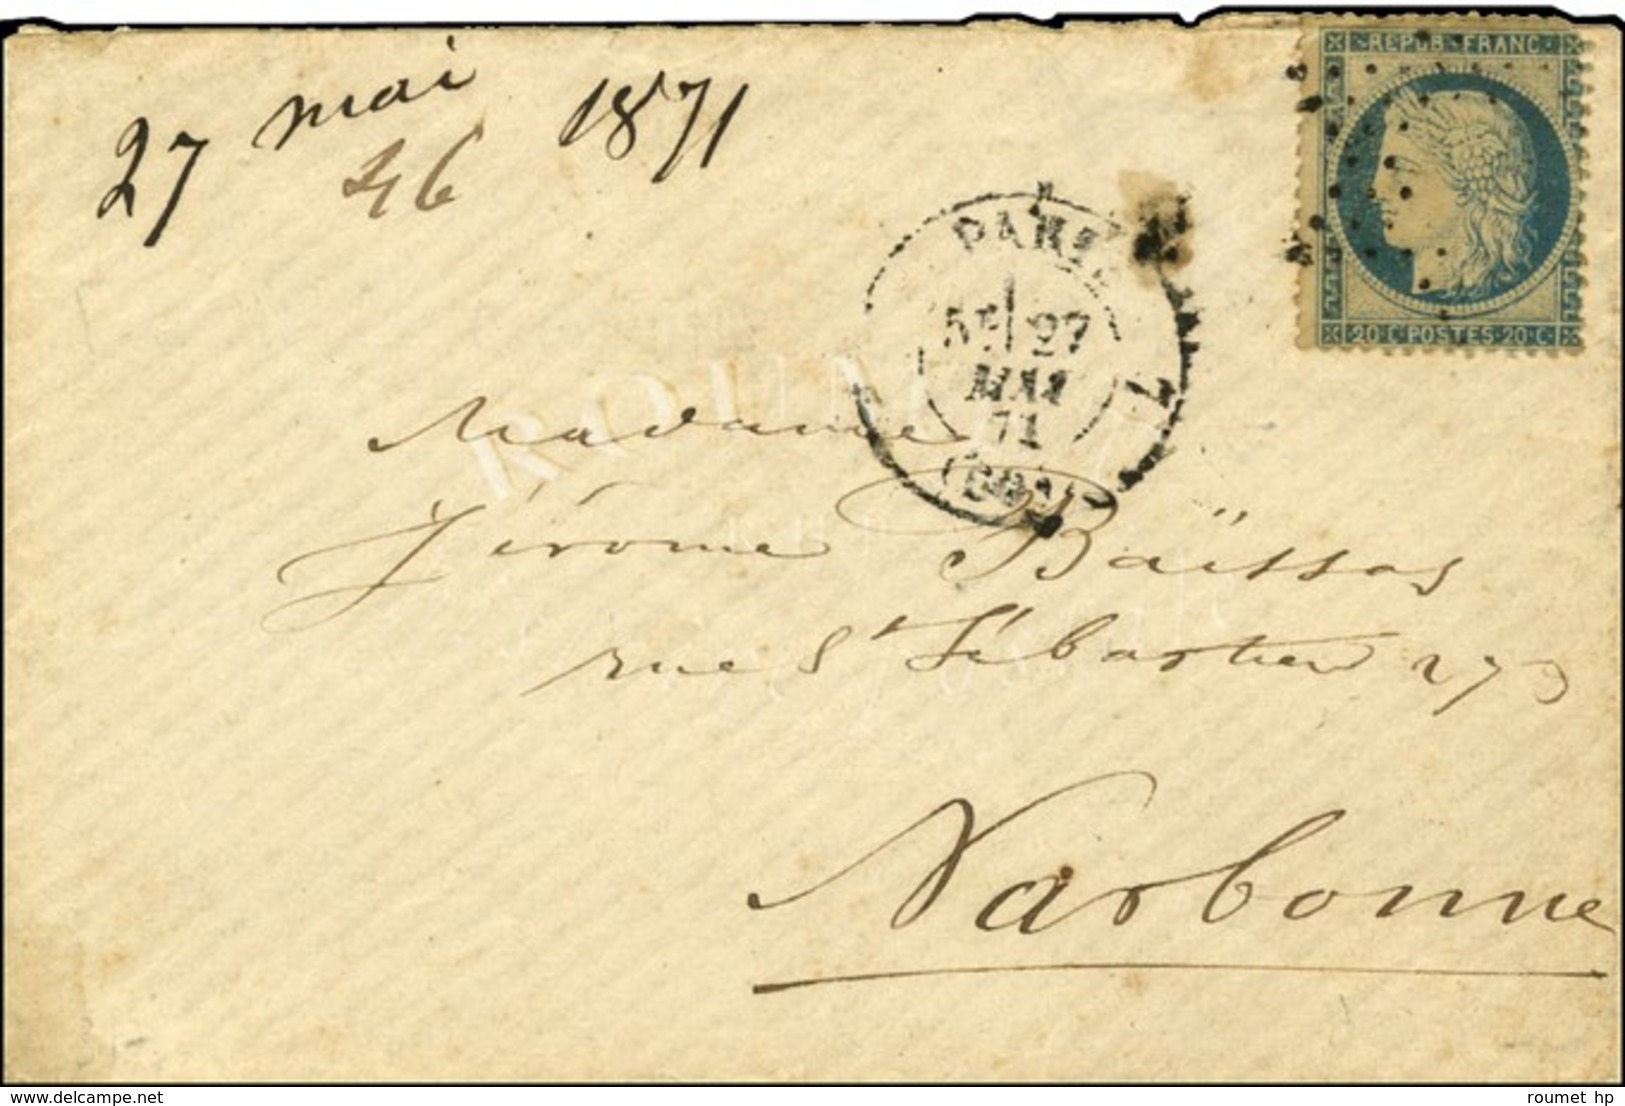 27 mai 1871
46
REPUB FRANC
20 C POSTES 20 C
PARIS
5E 27
MAI
71
(60)
Madame
Jérôme Baïssas
rue St Sébastien 27
Narbonne
ROUMET
delcampe.net
roumet hp